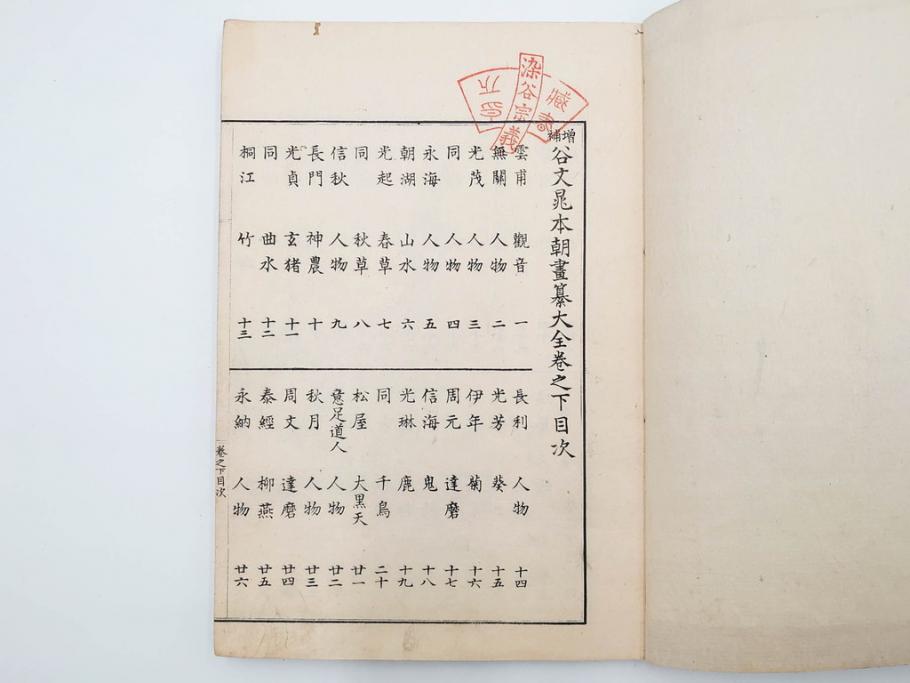 染谷宗義
藏書
增補 谷文晁本朝畫纂大全卷之下目次
雲甫 觀音 一
無關 人物 二
光茂 人物 三
同 人物 四
永海 人物 五
朝湖 山水 六
光起 春草 七
同 秋草 八
信秋 人物 九
長門 神農 十
光貞 玄猪 十一
同 曲水 十二
桐江 竹 十三
長利 人物 十四
光芳 葵 十五
伊年 菊 十六
周元 達磨 十七
信海 鬼 十八
光琳 鹿 十九
同 千鳥 二十
松屋 大黑天 廿一
意足道人 人物 廿二
秋月 人物 廿三
周文 達磨 廿四
泰經 柳燕 廿五
永納 人物 廿六
卷之下目次